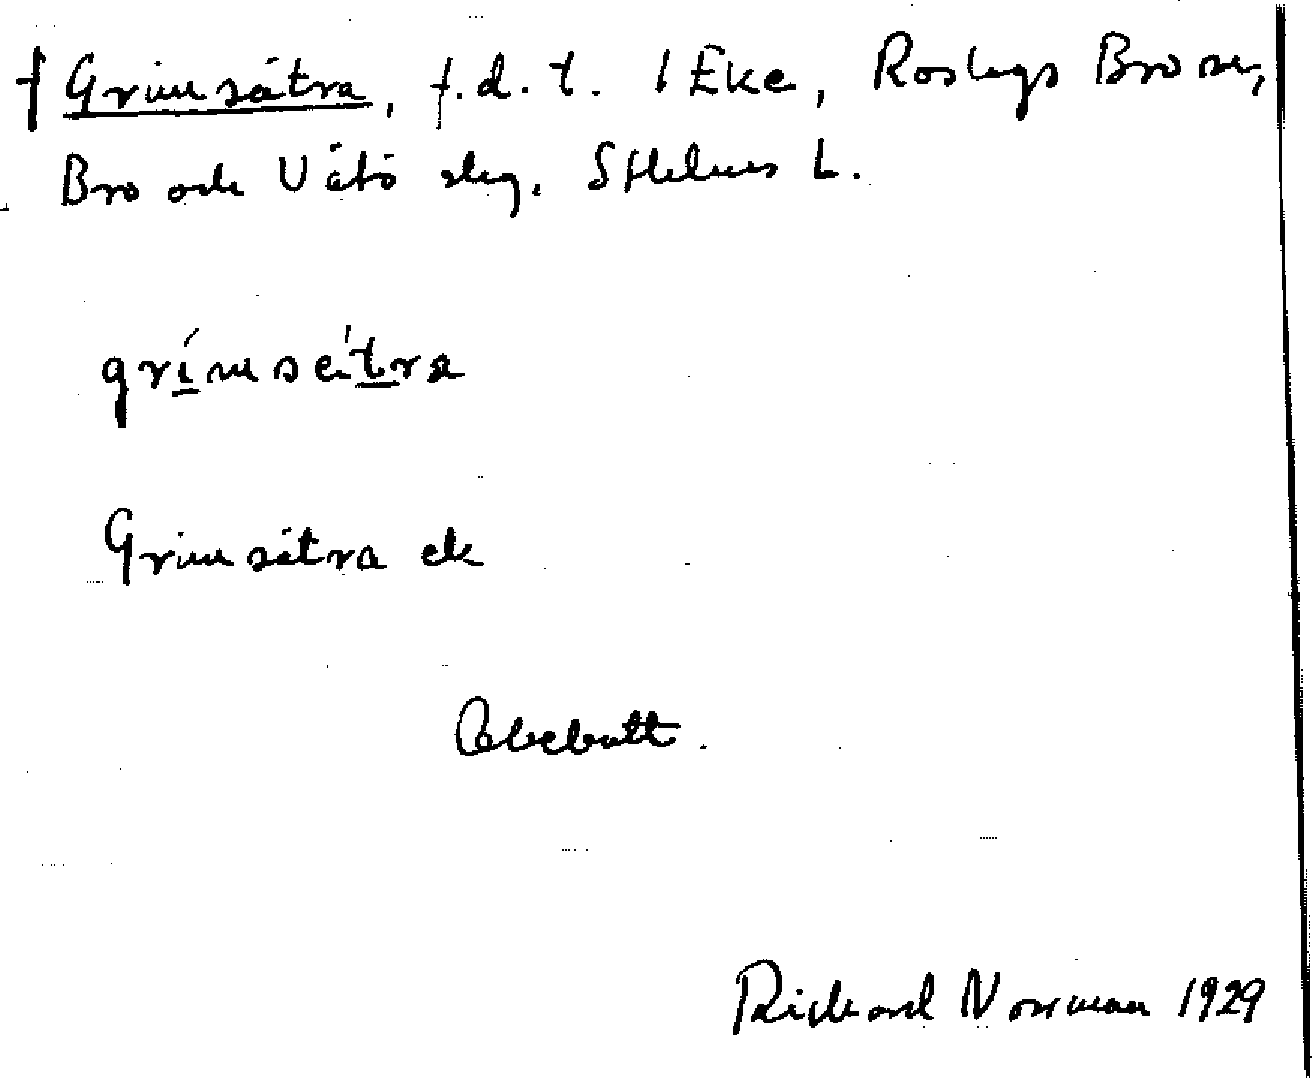 † Grimsätra, f.d. t. 1 Eke, Roslags Bro sn,
Bro och Vätö skg. Sthlms L.
grímsétra
Grimsätra ek
Obebott.
Rickard Norrman 1929